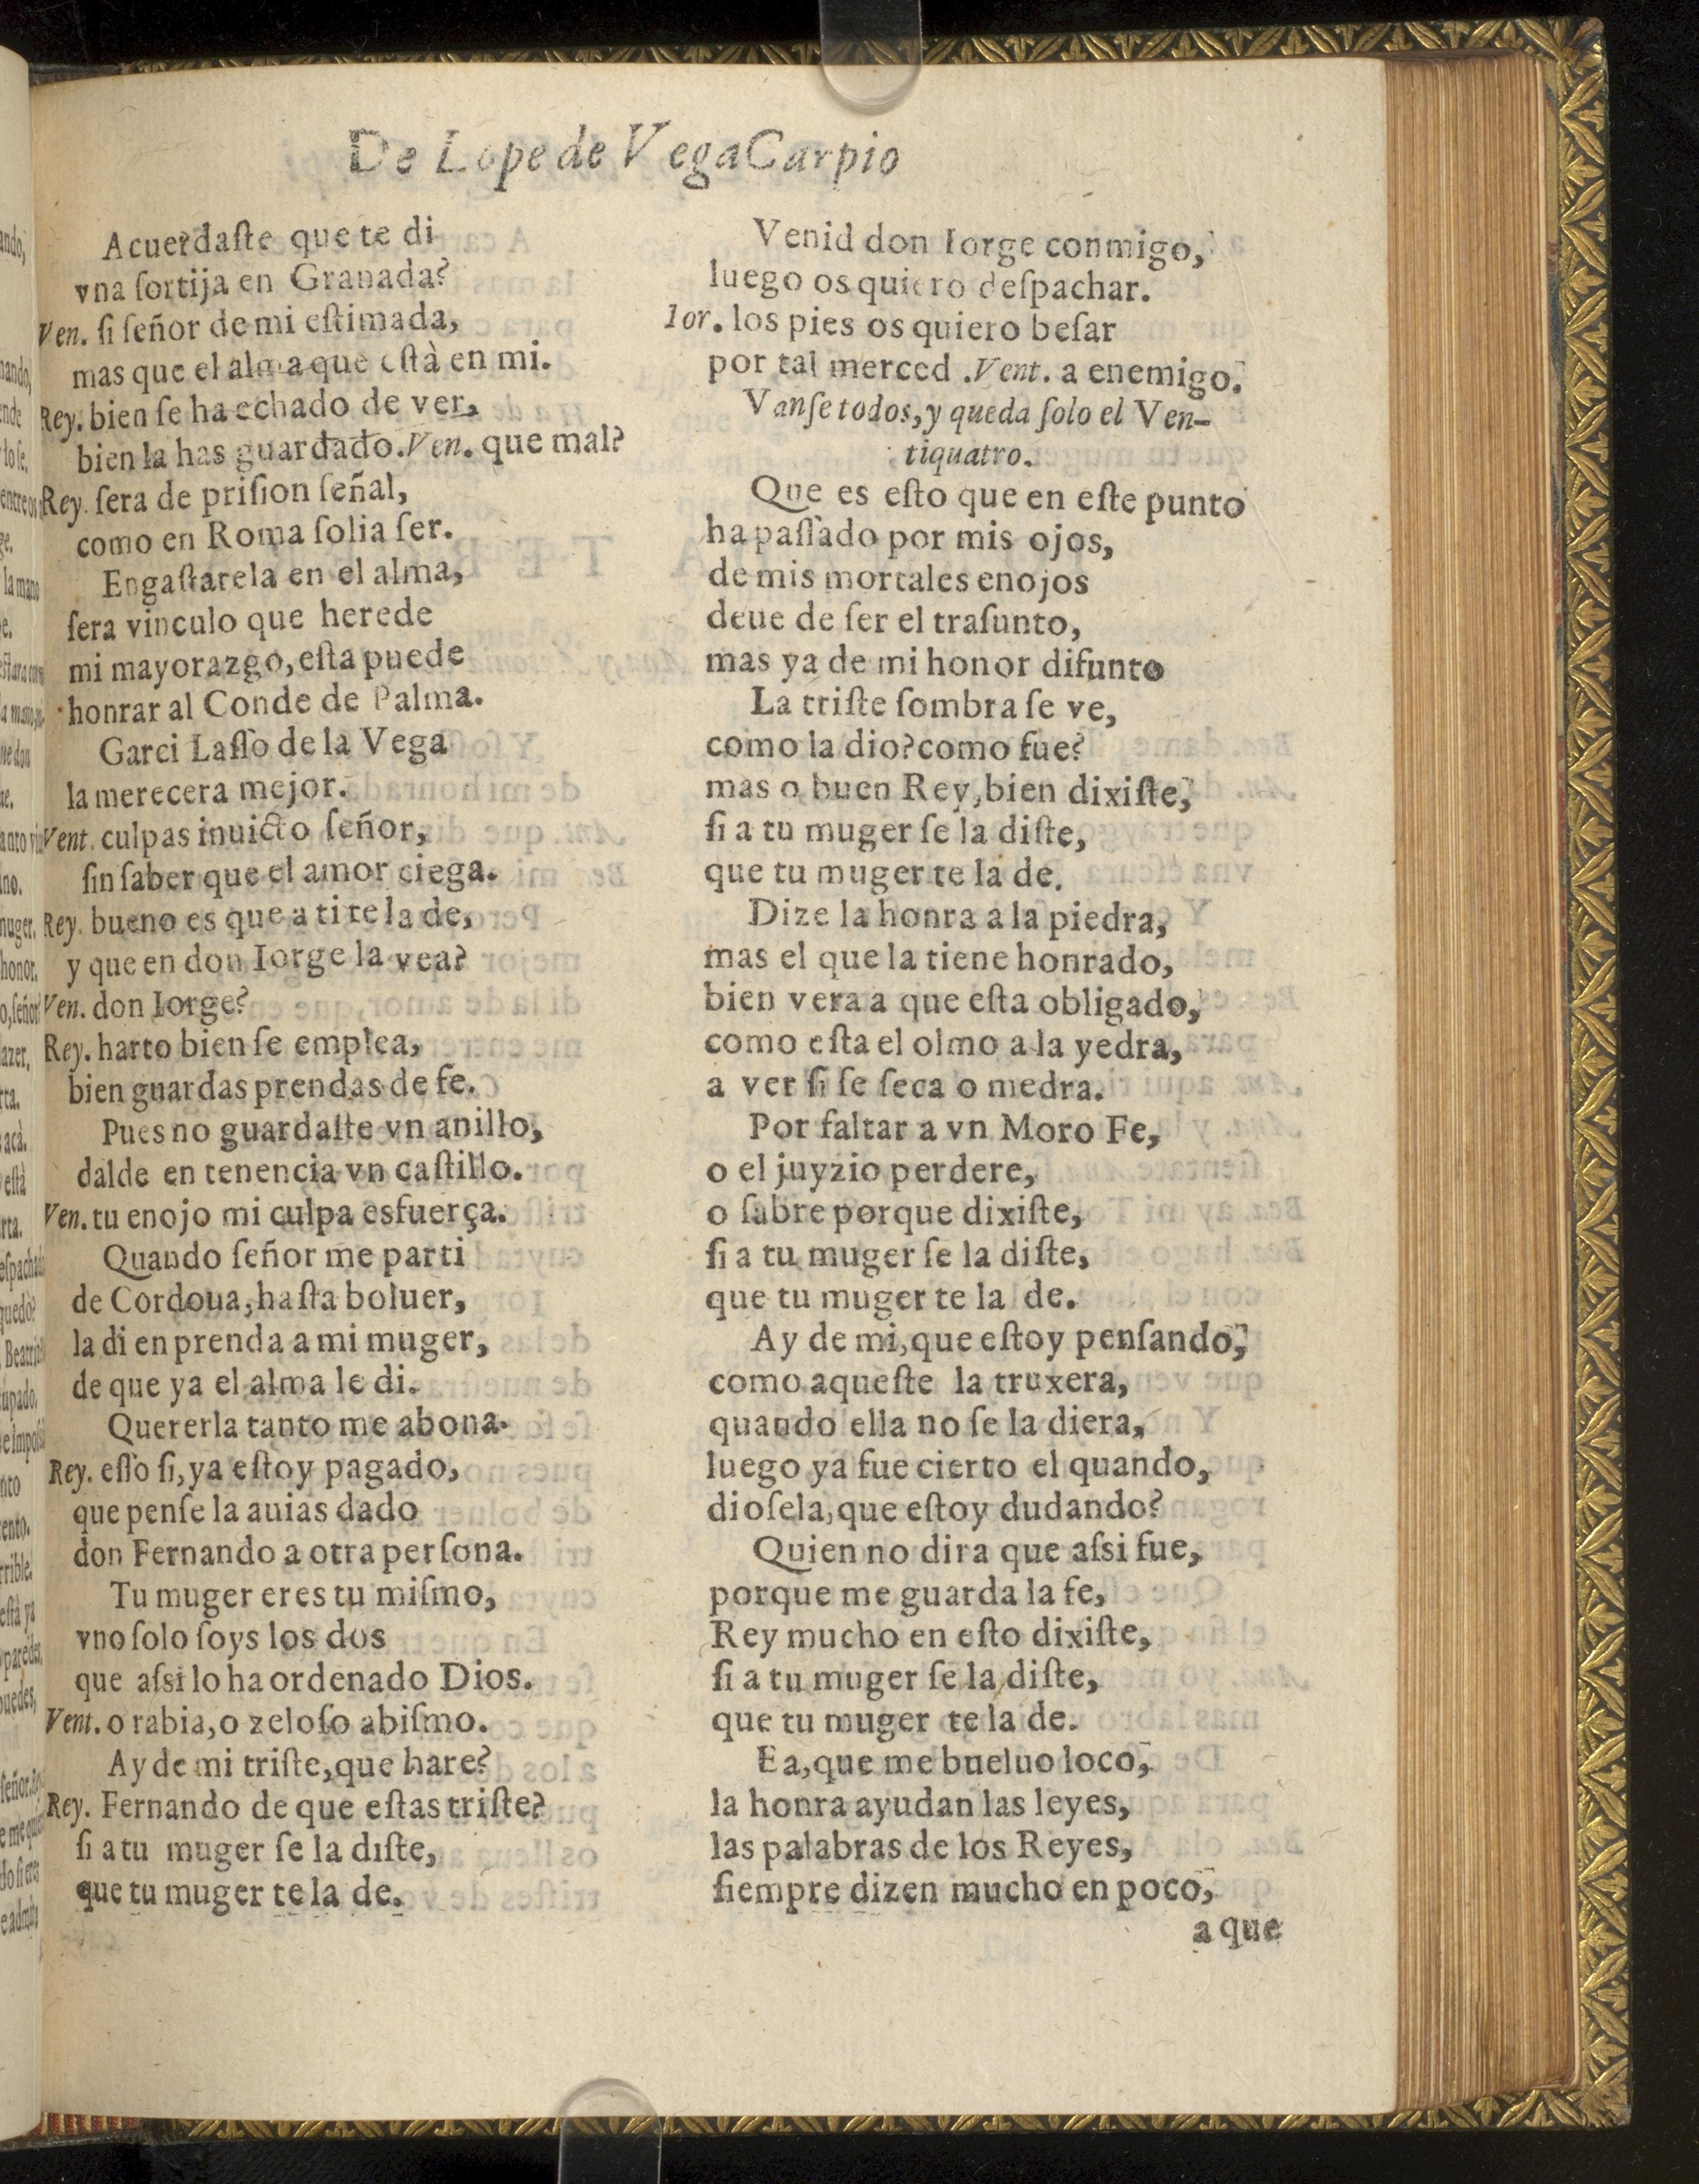 De Lope de Vega Carpio
Acuerdaſte que te di
vna ſortija en Granada?
Ven. ſi ſeñor de mi eſtimada,
mas que el alma que eſtà en mi.
Rey. bien ſe ha echado de ver,
bien la has guardado. Ven. que mal?
Rey. ſera de priſion ſeñal,
como en Roma ſolia ſer.
Engaſtarela en el alma,
ſera vinculo que herede
mi mayorazgo, eſta puede
honrar al Conde de Palma.
Garci Laſſo de la Vega
la merecera mejor.
Vent. culpas inuicto ſeñor,
ſin ſaber que el amor ciega.
Rey. bueno es que a ti te la de,
y que en don Iorge la vea?
Ven. don Iorge?
Rey. harto bien ſe emplea,
bien guardas prendas de fe.
Pues no guardaſte vn anillo,
dalde en tenencia vn caſtillo.
Ven. tu enojo mi culpa esfuerça.
Quando ſeñor me parti
de Cordoua, haſta boluer,
la di en prenda a mi muger,
de que ya el alma le di.
Quererla tanto me abona.
Rey. eſſo ſi, ya eſtoy pagado,
que penſe la auias dado
don Fernando a otra perſona.
Tu muger eres tu miſmo,
vno ſolo ſoys los dos
que aſsi lo ha ordenado Dios.
Vent. o rabia, o zeloſo abiſmo.
Ay de mi triſte, que hare?
Rey. Fernando de que eſtas triſte?
ſi a tu muger ſe la diſte,
que tu muger te la de.
Venid don Iorge conmigo,
luego os quiero deſpachar.
Ior. los pies os quiero beſar
por tal merced. Vent. a enemigo.
Vanſe todos, y queda ſolo el Ven-
tiquatro.
Que es eſto que en eſte punto
ha paſſado por mis ojos,
de mis mortales enojos
deue de ſer el traſunto,
mas ya de mi honor difunto
La triſte ſombra ſe ve,
como la dio? como fue?
mas o buen Rey, bien dixiſte,
ſi a tu muger ſe la diſte,
que tu muger te la de.
Dize la honra a la piedra,
mas el que la tiene honrado,
bien vera a que eſta obligado,
como eſta el olmo a la yedra,
a ver ſi ſe ſeca o medra.
Por faltar a vn Moro Fe,
o el juyzio perdere,
o ſabre porque dixiſte,
ſi a tu muger ſe la diſte,
que tu muger te la de.
Ay de mi, que eſtoy penſando,
como aqueſte la truxera,
quando ella no ſe la diera,
luego ya fue cierto el quando,
dioſela, que eſtoy dudando?
Quien no dira que aſsi fue,
porque me guarda la fe,
Rey mucho en eſto dixiſte,
ſi a tu muger ſe la diſte,
que tu muger te la de.
Ea, que me bueluo loco,
la honra ayudan las leyes,
las palabras de los Reyes,
ſiempre dizen mucho en poco,
a que